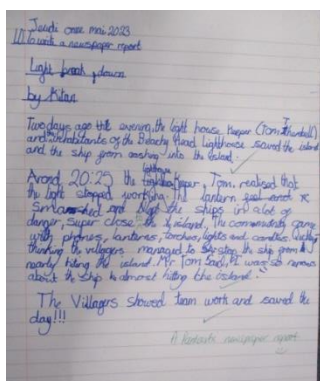 Jeudi onze mai 2023
LO to write a newspaper report
Light break down
by Kilan
Two days ago this evening, the light house keeper (Tom
and inhabitants of the Beachy Head lighthouse saved the island
and the ship from crashing into the island.
Arond 20:25 the lighthouse keeper, Tom, realised that
the light stopped working. The lantern and
smashed and the ships in a lot of
danger, super close the island, The community came
with phones, lanterns, torches, lights and candles, luckly
thinking the villagers managed to stop the ship from
nearly hiting the island. Mr Tom said, "I was so nervous
about the ship almost hitting the island."
The Villagers showed team work and saved the
day!!!
A fantastic newspaper report